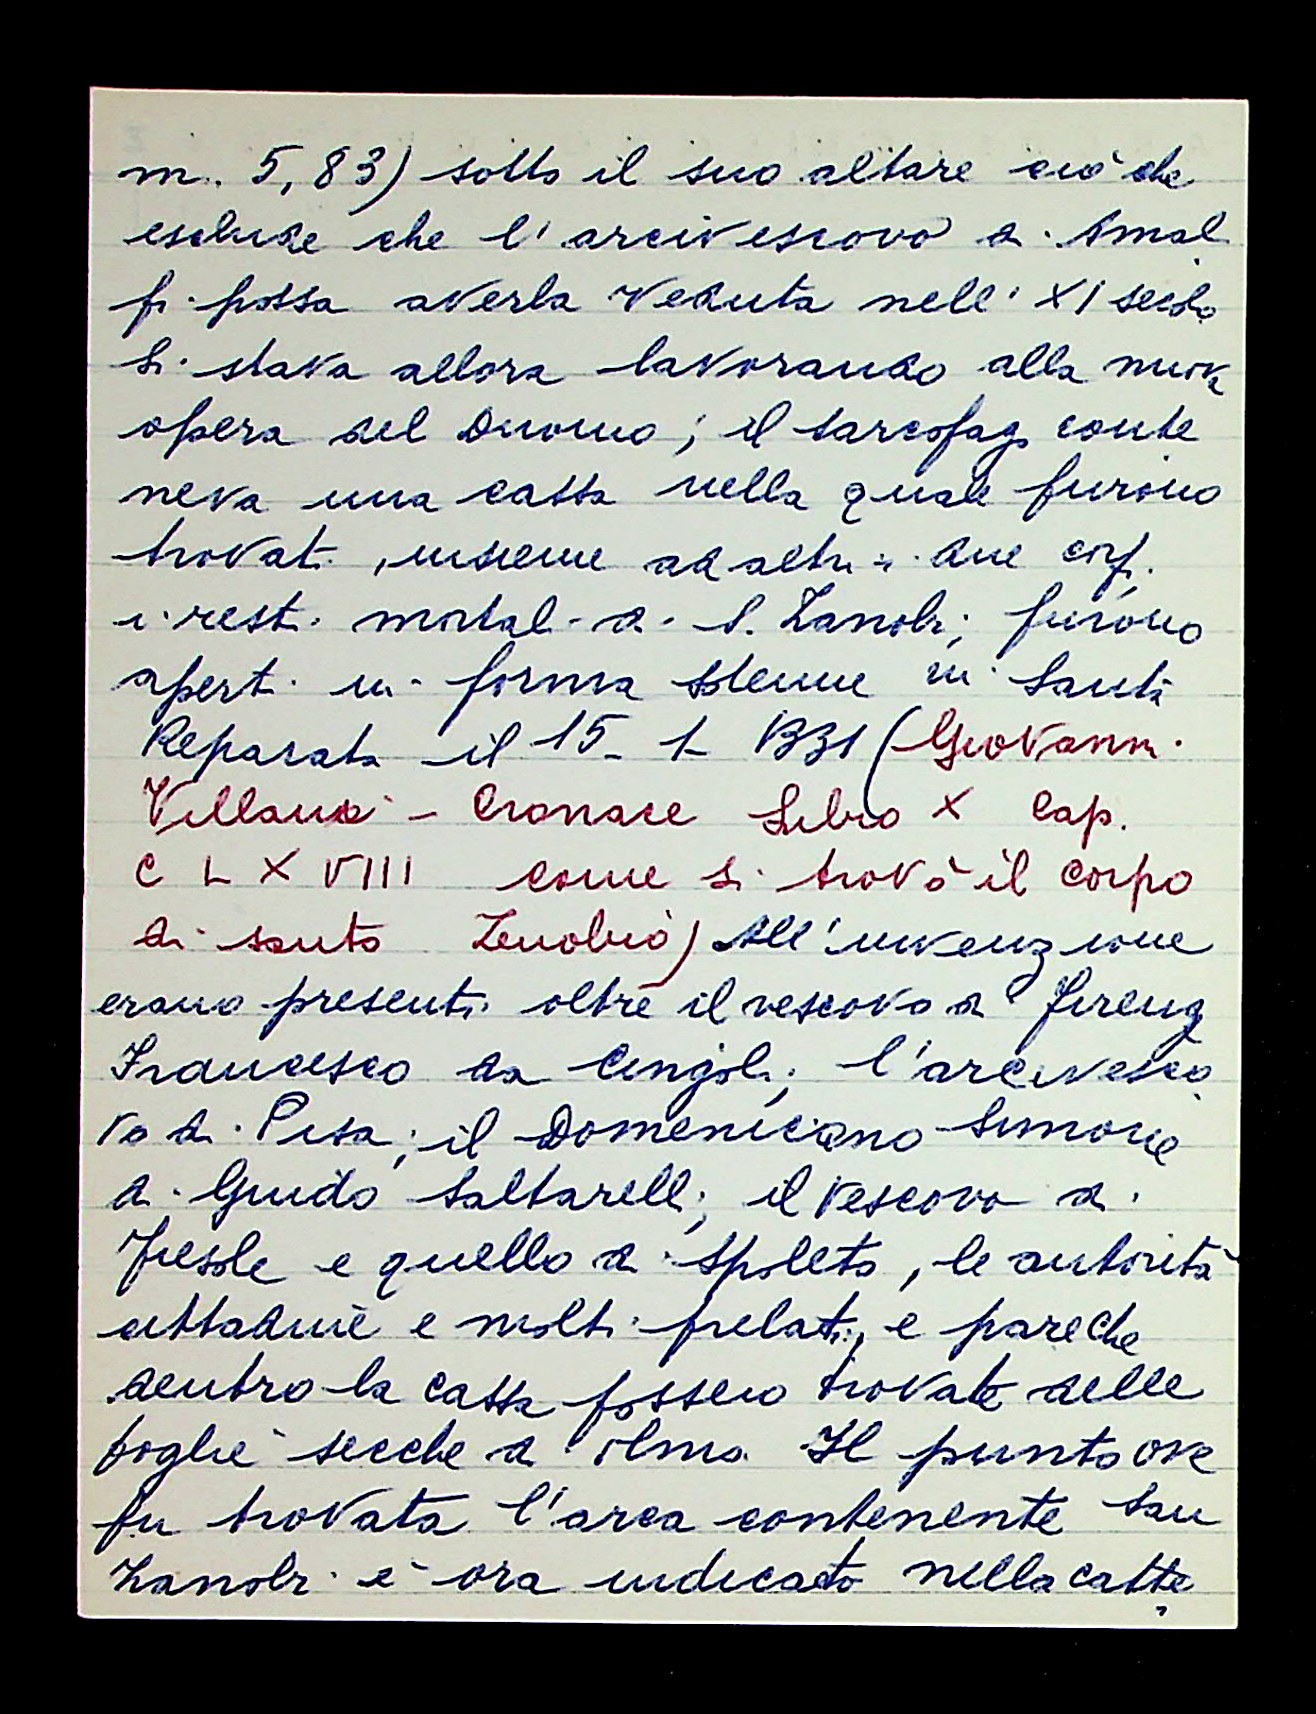 m. 5,83) sotto il suo altare ciò che
esclude che l'arcivescovo di Amal
fi possa averla veduta nell' XI secolo
si stava allora lavorando alla nuova
opera del Duomo; il sarcofago conte
neva una cassa nella quale furono
trovati, insieme ad altri due corpi
i resti mortali di S. Zanobi; furono
aperti in forma solenne in Santa
Reparata il 15-1-1331 (Giovanni
Villani - Cronace Libro X Cap.
CLXVIII come si trovò il corpo
di santo Zenobio) All'invenzione
erano presenti oltre il vescovo di Firenz
Francesco da Cingoli; l'arcivesco
vo di Pisa; il Domenicano Simone
di Guido Saltarelli; il vescovo di
Fiesole e quello di Spoleto, le autorità
cittadine e molti prelati, e pare che
dentro la cassa fossero trovate delle
foglie secche di olmo. Il punto ove
fu trovata l'arca contenente San
Zanobi è ora indicato nella catte